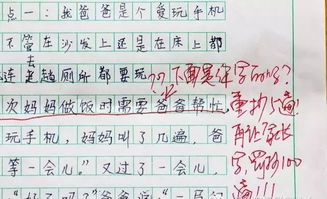 点一：我爸爸是个爱玩手机
不管在沙发上还是在床上都
连去趟厕所都要玩
??下面是你写的吗?
次妈妈做饭时需要爸爸帮忙,
重抄1遍!
玩手机，妈妈叫了几遍，爸
再让家长
等一会儿。”又过了一会儿，
写,罚抄100
遍!!!
“好了吗？”爸爸说：“